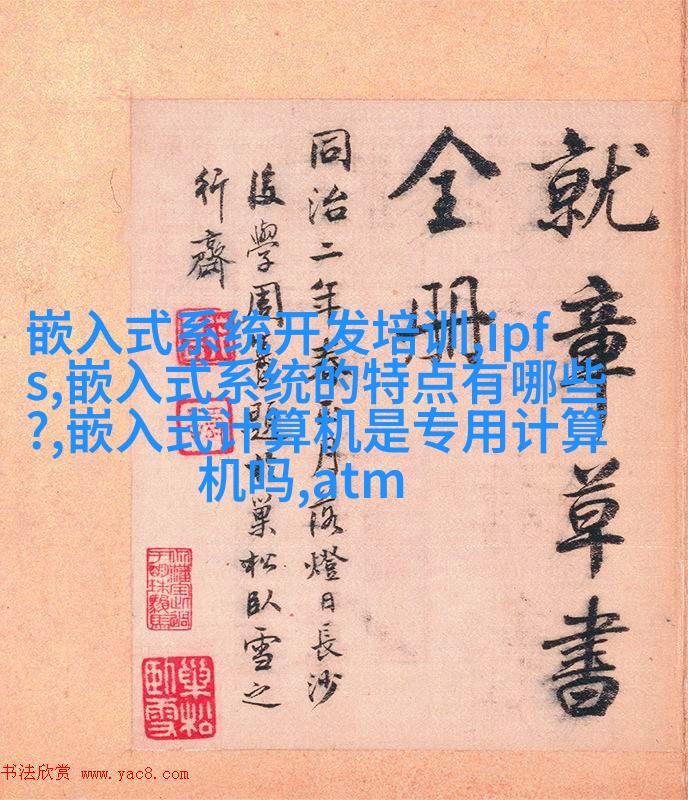 就章草書
全册
同治二年春正月落燈日長沙
後學周
題於巢松臥雪之
行齋
嵌入式系统开发培训,ipf
s,嵌入式系统的特点有哪些
?,嵌入式计算机是专用计算
机吗,atm
巢松
臥雪
书法欣赏 www.yac8.com